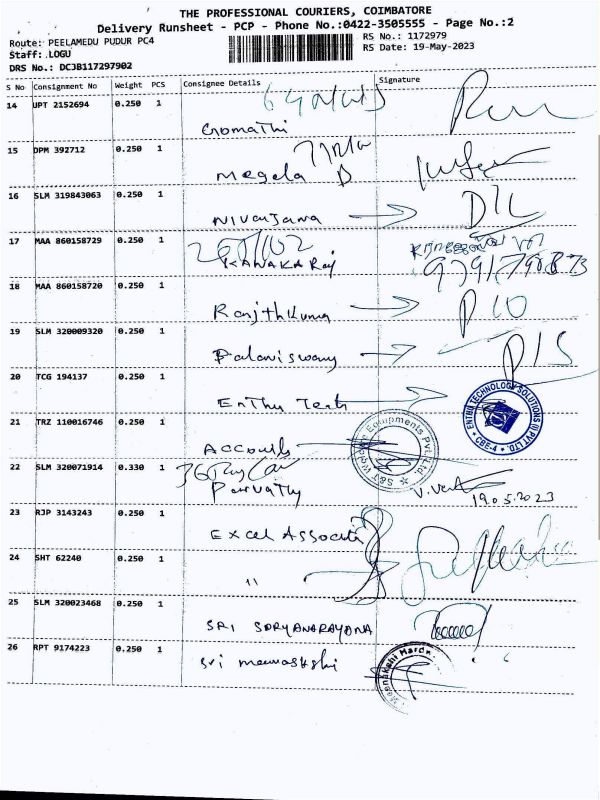 THE PROFESSIONAL COURIERS, COIMBATORE
Delivery Runsheet - PCP - Phone No.:0422-3505555 - Page No.:2
Route: PEELAMEDU PUDUR PC4
RS No.: 1172979
Staff: LOGU
RS Date: 19-May-2023
DRS No.: DCJB117297902
S No Consignment No Weight PCS Consignee Details Signature
14 UPT 2152694 0.250 1
Gomathi
15 DPM 392712 0.250 1
Megala D
16 SLM 319843063 0.250 1
Nivanjana
17 MAA 860158729 0.250 1
KANAKA Raj
18 MAA 860158720 0.250 1
Ranjthkuma
19 SLM 320009320 0.250 1
Palaniswamy
20 TCG 194137 0.250 1
EnThu Tech
ENTHU TECHNOLOGY SOLUTIONS (I) PVT LTD. CBE-4
21 TRZ 110016746 0.250 1
Accounts
Equipments Pvt. Ltd.
22 SLM 320071914 0.330 1
Parvathy
19.05.2023
23 RJP 3143243 0.250 1
Excel Associate
24 SHT 62240 0.250 1
"
25 SLM 320023468 0.250 1
SRI SORYANARAYANA
26 RPT 9174223 0.250 1
Sri